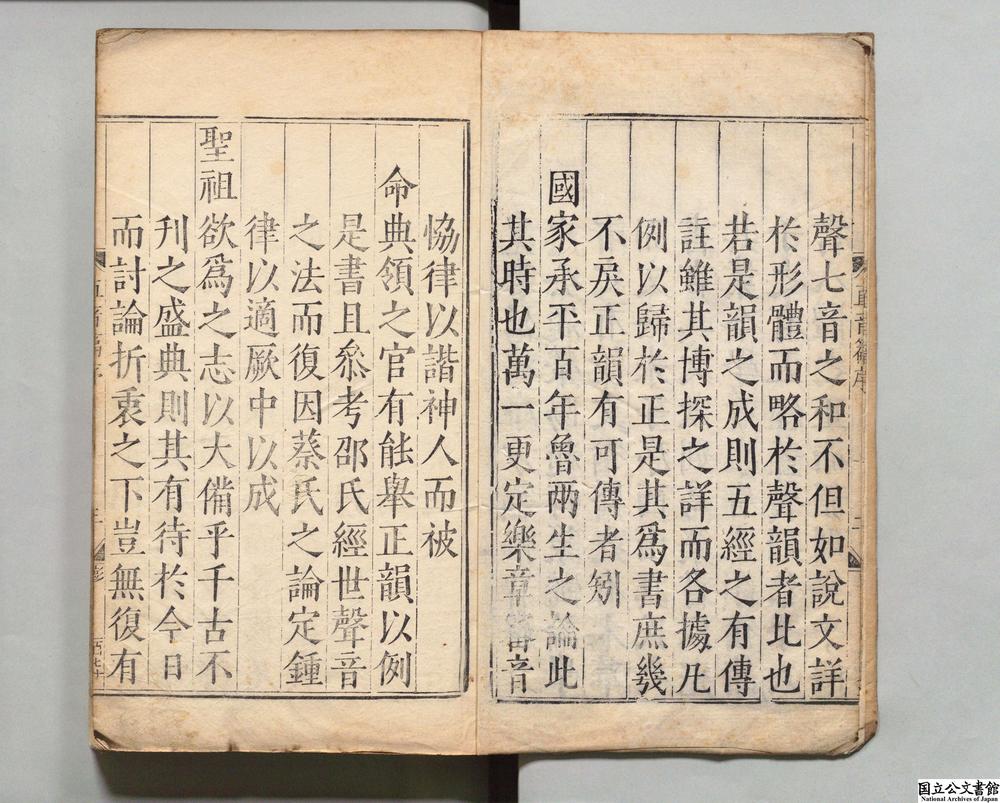 聲七音之和不但如說文詳
於形體而略於聲韻者比也
若是韻之成則五經之有傳
註雖其博探之詳而各據凡
例以歸於正是其爲書庶幾
不戾正韻有可傳者矧
國家承平百年魯兩生之論此
其時也萬一更定樂章審音
恊律以諧神人而被
命典領之官有能舉正韻以例
是書且叅考邵氏經世聲音
之法而復因蔡氏之論定鍾
律以適厥中以成
聖祖欲爲之志以大備乎千古不
刋之盛典則其有待於今日
而討論折衷之下豈無復有
国立公文書館
National Archives of Japan